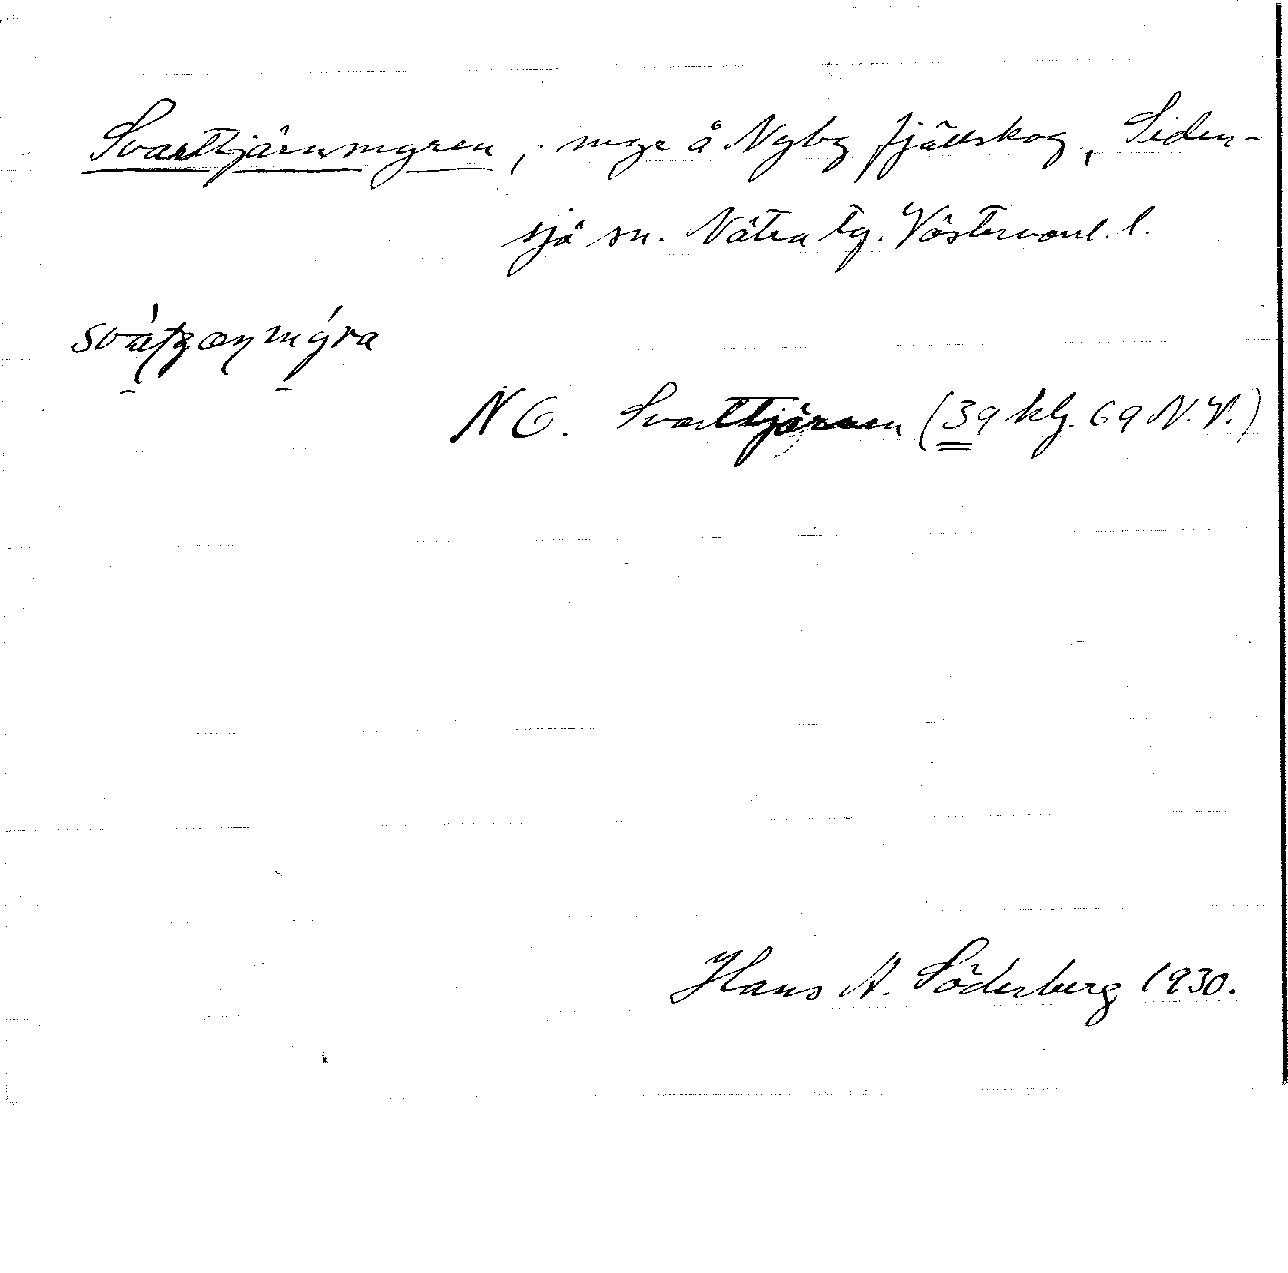 Svarttjärnmyren, myr å Nyby fjällskog, Siden-
sjö sn. Nätra tg. Västernorrl. l.
myra
NO. Svarttjärnen (39 klg. 69 N.V.)
Hans A. Söderberg 1930.